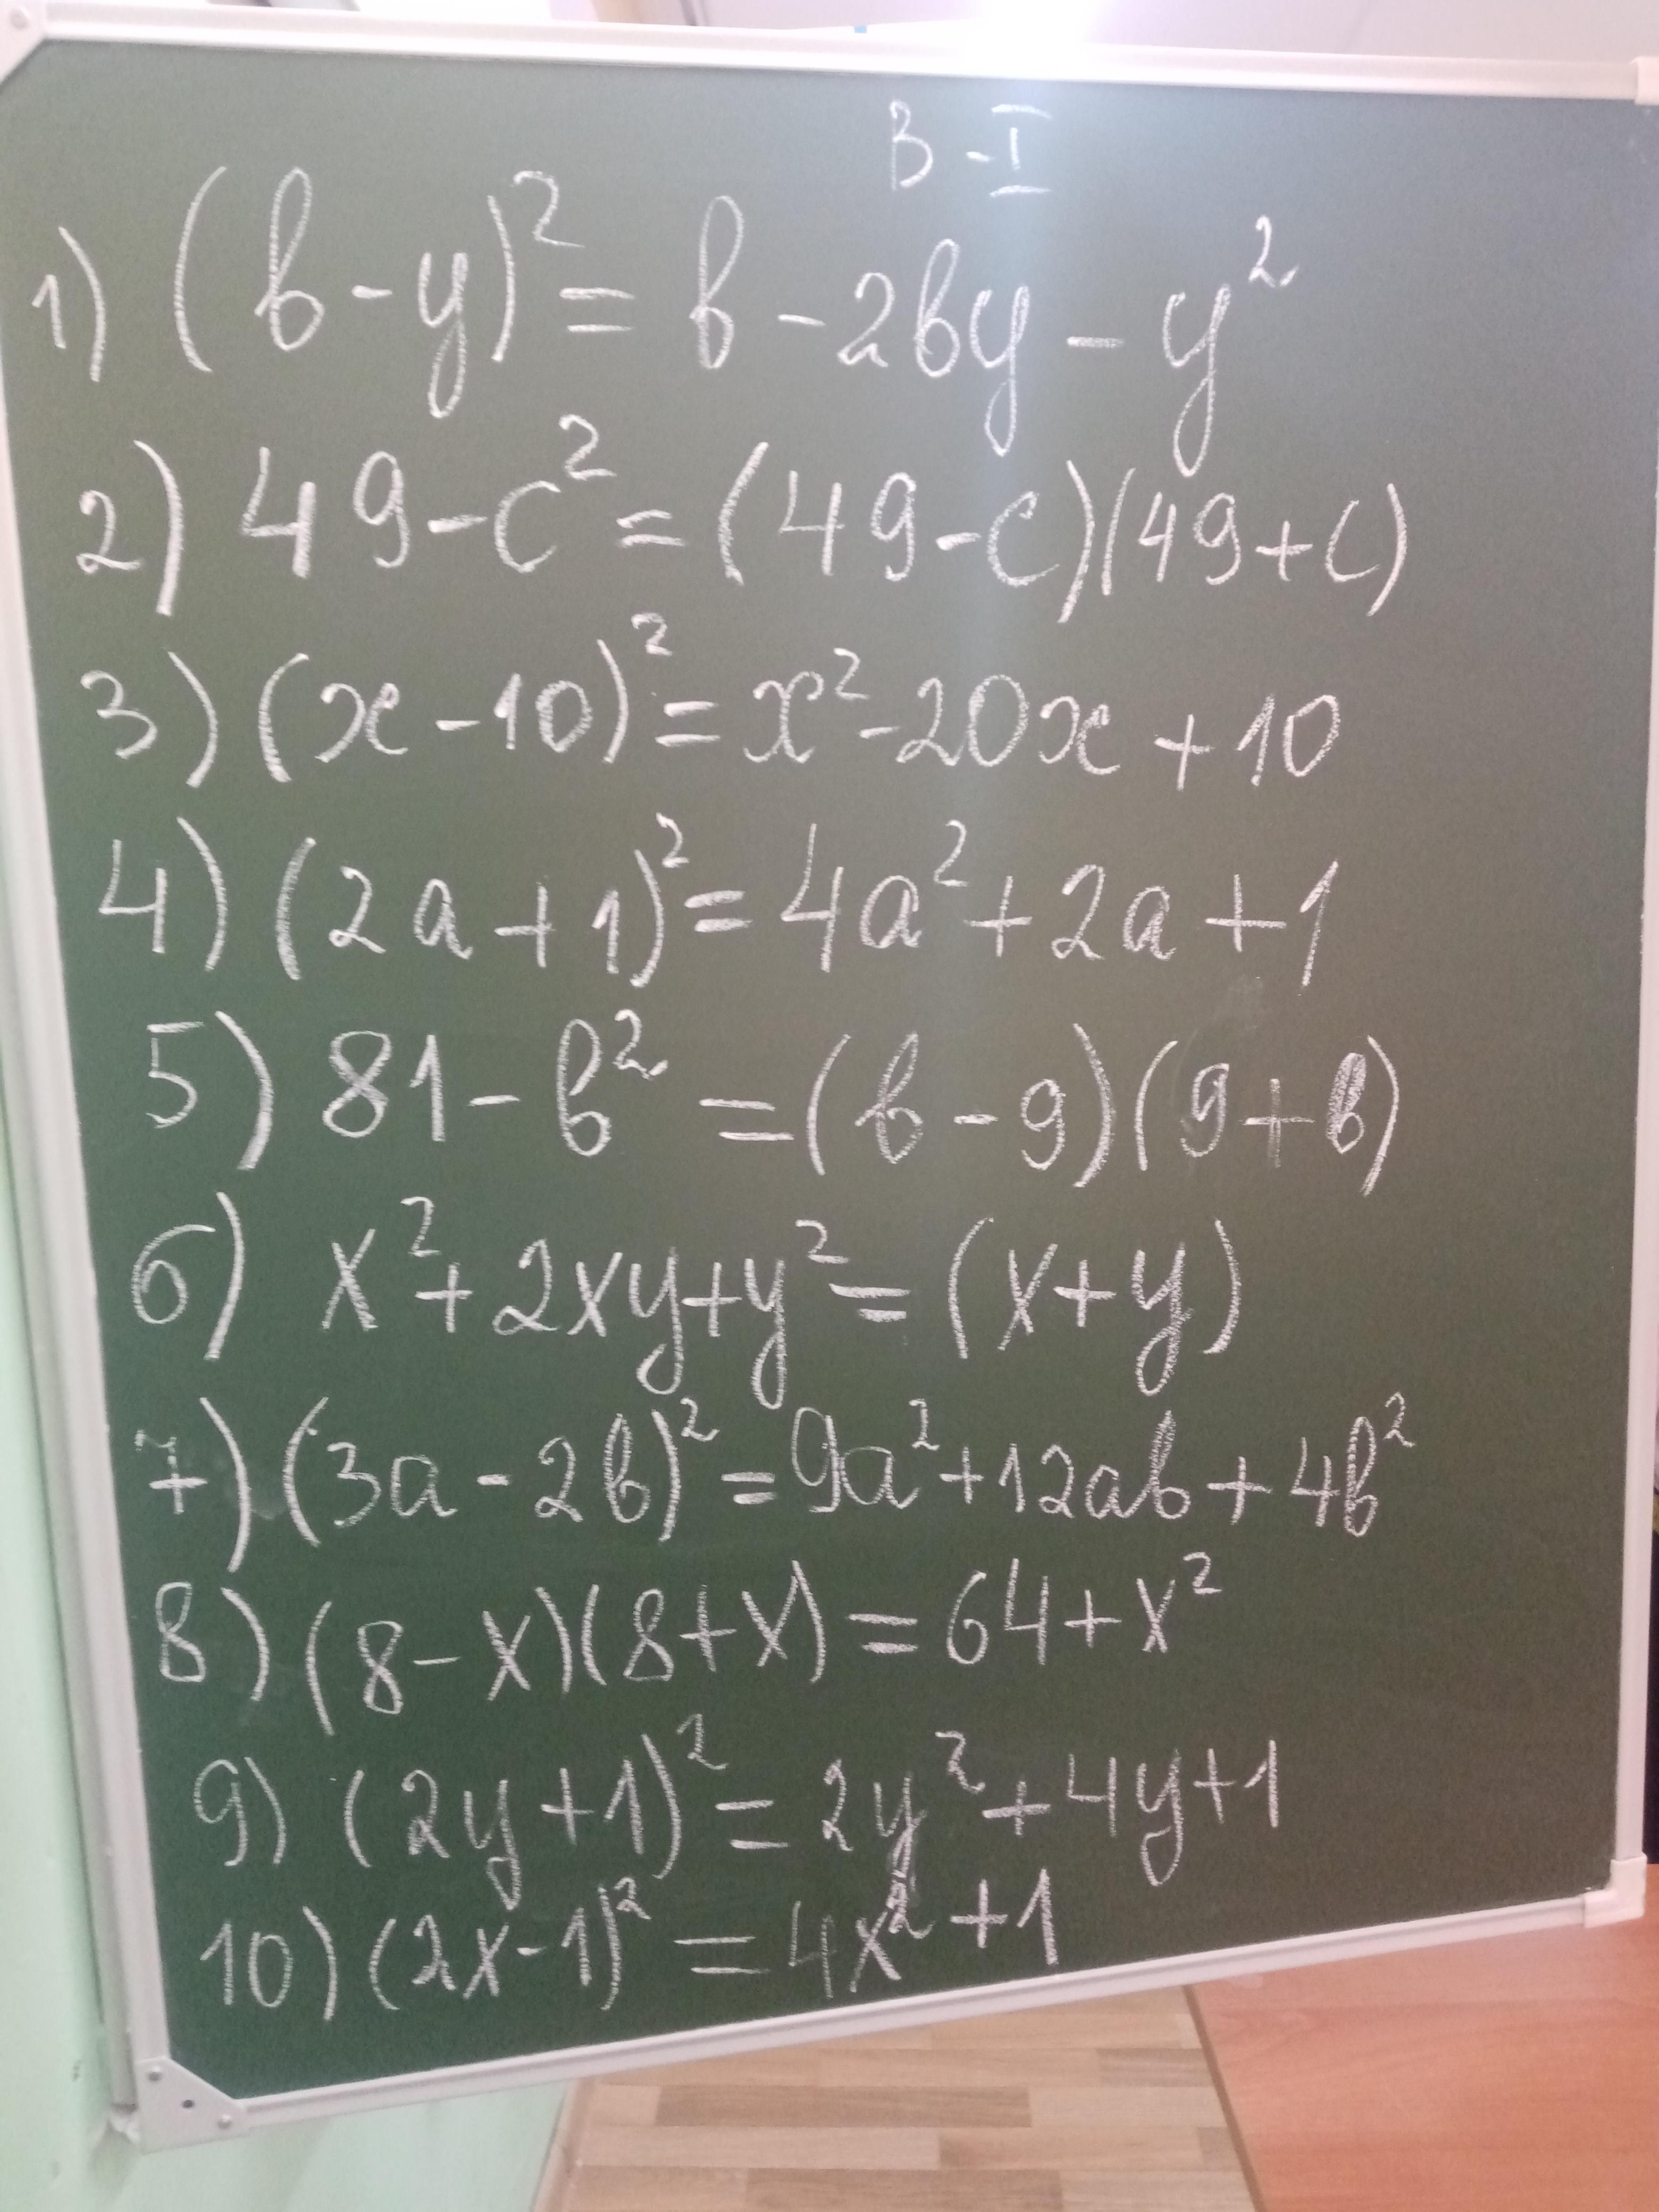 В - I
1) (в - y)² = в - 2вy - y²
2) 49 - c² = (49 - c)(49 + c)
3) (x - 10)² = x² - 20x + 10
4) (2a + 1)² = 4a² + 2a + 1
5) 81 - в² = (в - 9)(9 + в)
6) x² + 2xy + y² = (x + y)
7) (3a - 2в)² = 9a² + 12aв + 4в²
8) (8 - x)(8 + x) = 64 + x²
9) (2y + 1)² = 2y² + 4y + 1
10) (2x - 1)² = 4x² + 1